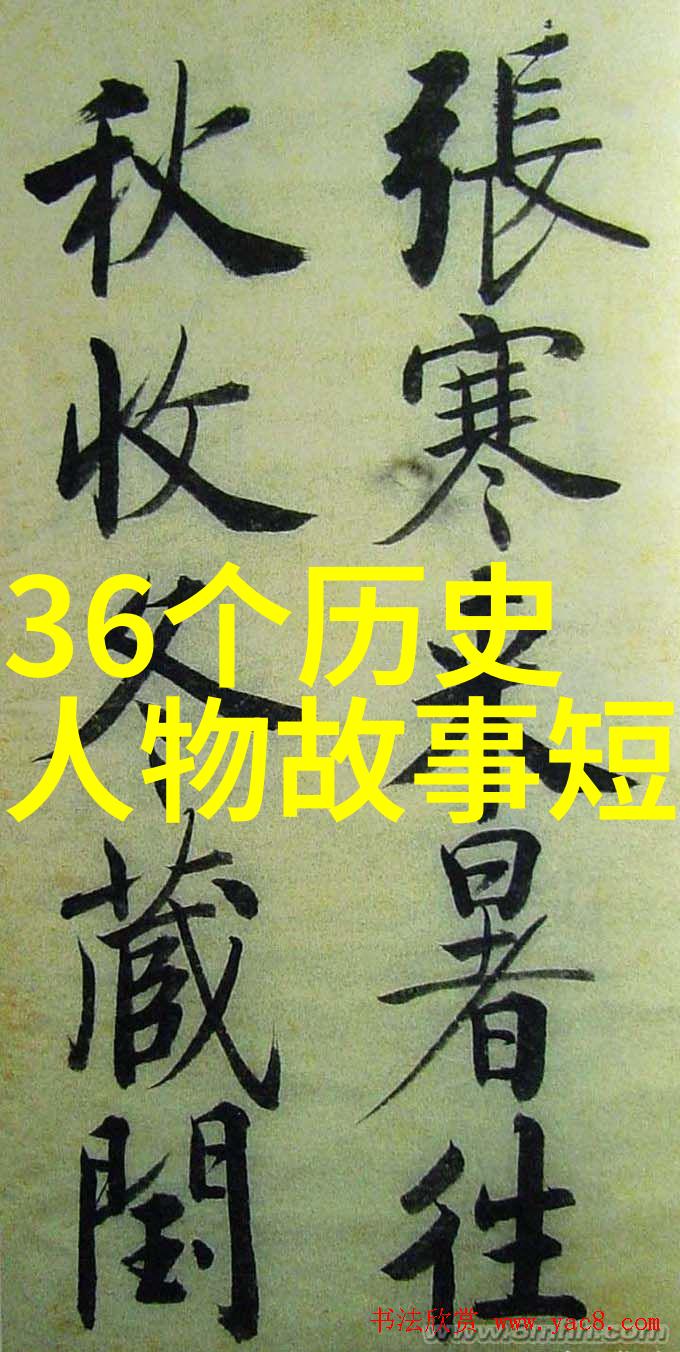 張寒来暑往
秋收冬蔵閏
36个历史
人物故事短
书法欣赏 www.yac8.com